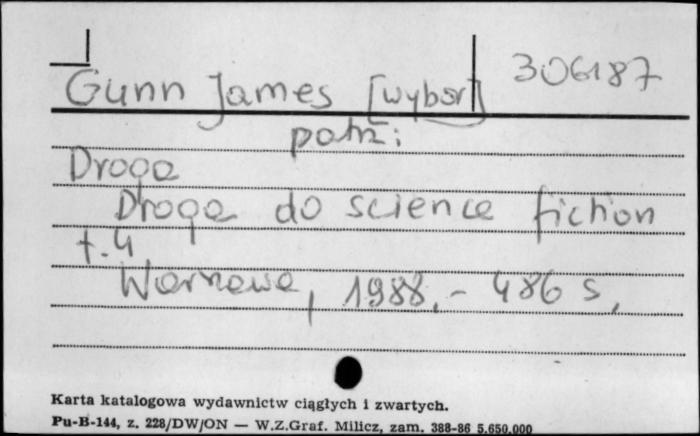 306187
Gunn James [wybór]
patrz:
Droga
Droga do science fiction
t. 4
Warszawa, 1988.- 486 s,
Karta katalogowa wydawnictw ciągłych i zwartych.
Pu-B-144, z. 228/DW/ON — W.Z.Graf. Milicz, zam. 388-86 5.650.000